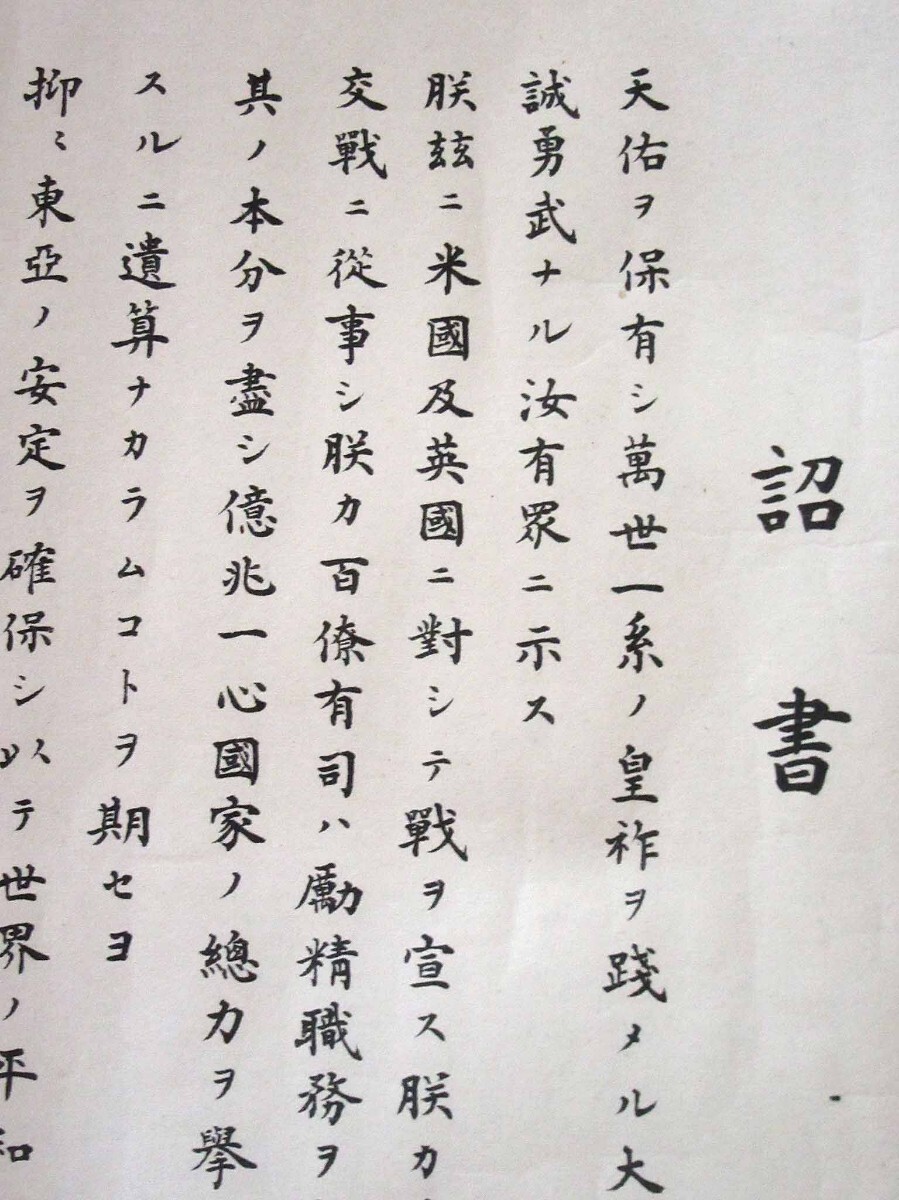 詔書
天佑ヲ保有シ萬世一系ノ皇祚ヲ踐メル大
誠勇武ナル汝有眾ニ示ス
朕茲ニ米國及英國ニ對シテ戰ヲ宣ス朕カ
交戰ニ從事シ朕カ百僚有司ハ勵精職務ヲ
其ノ本分ヲ盡シ億兆一心國家ノ總力ヲ擧
スルニ遺算ナカラムコトヲ期セヨ
抑〻東亞ノ安定ヲ確保シ以テ世界ノ平和